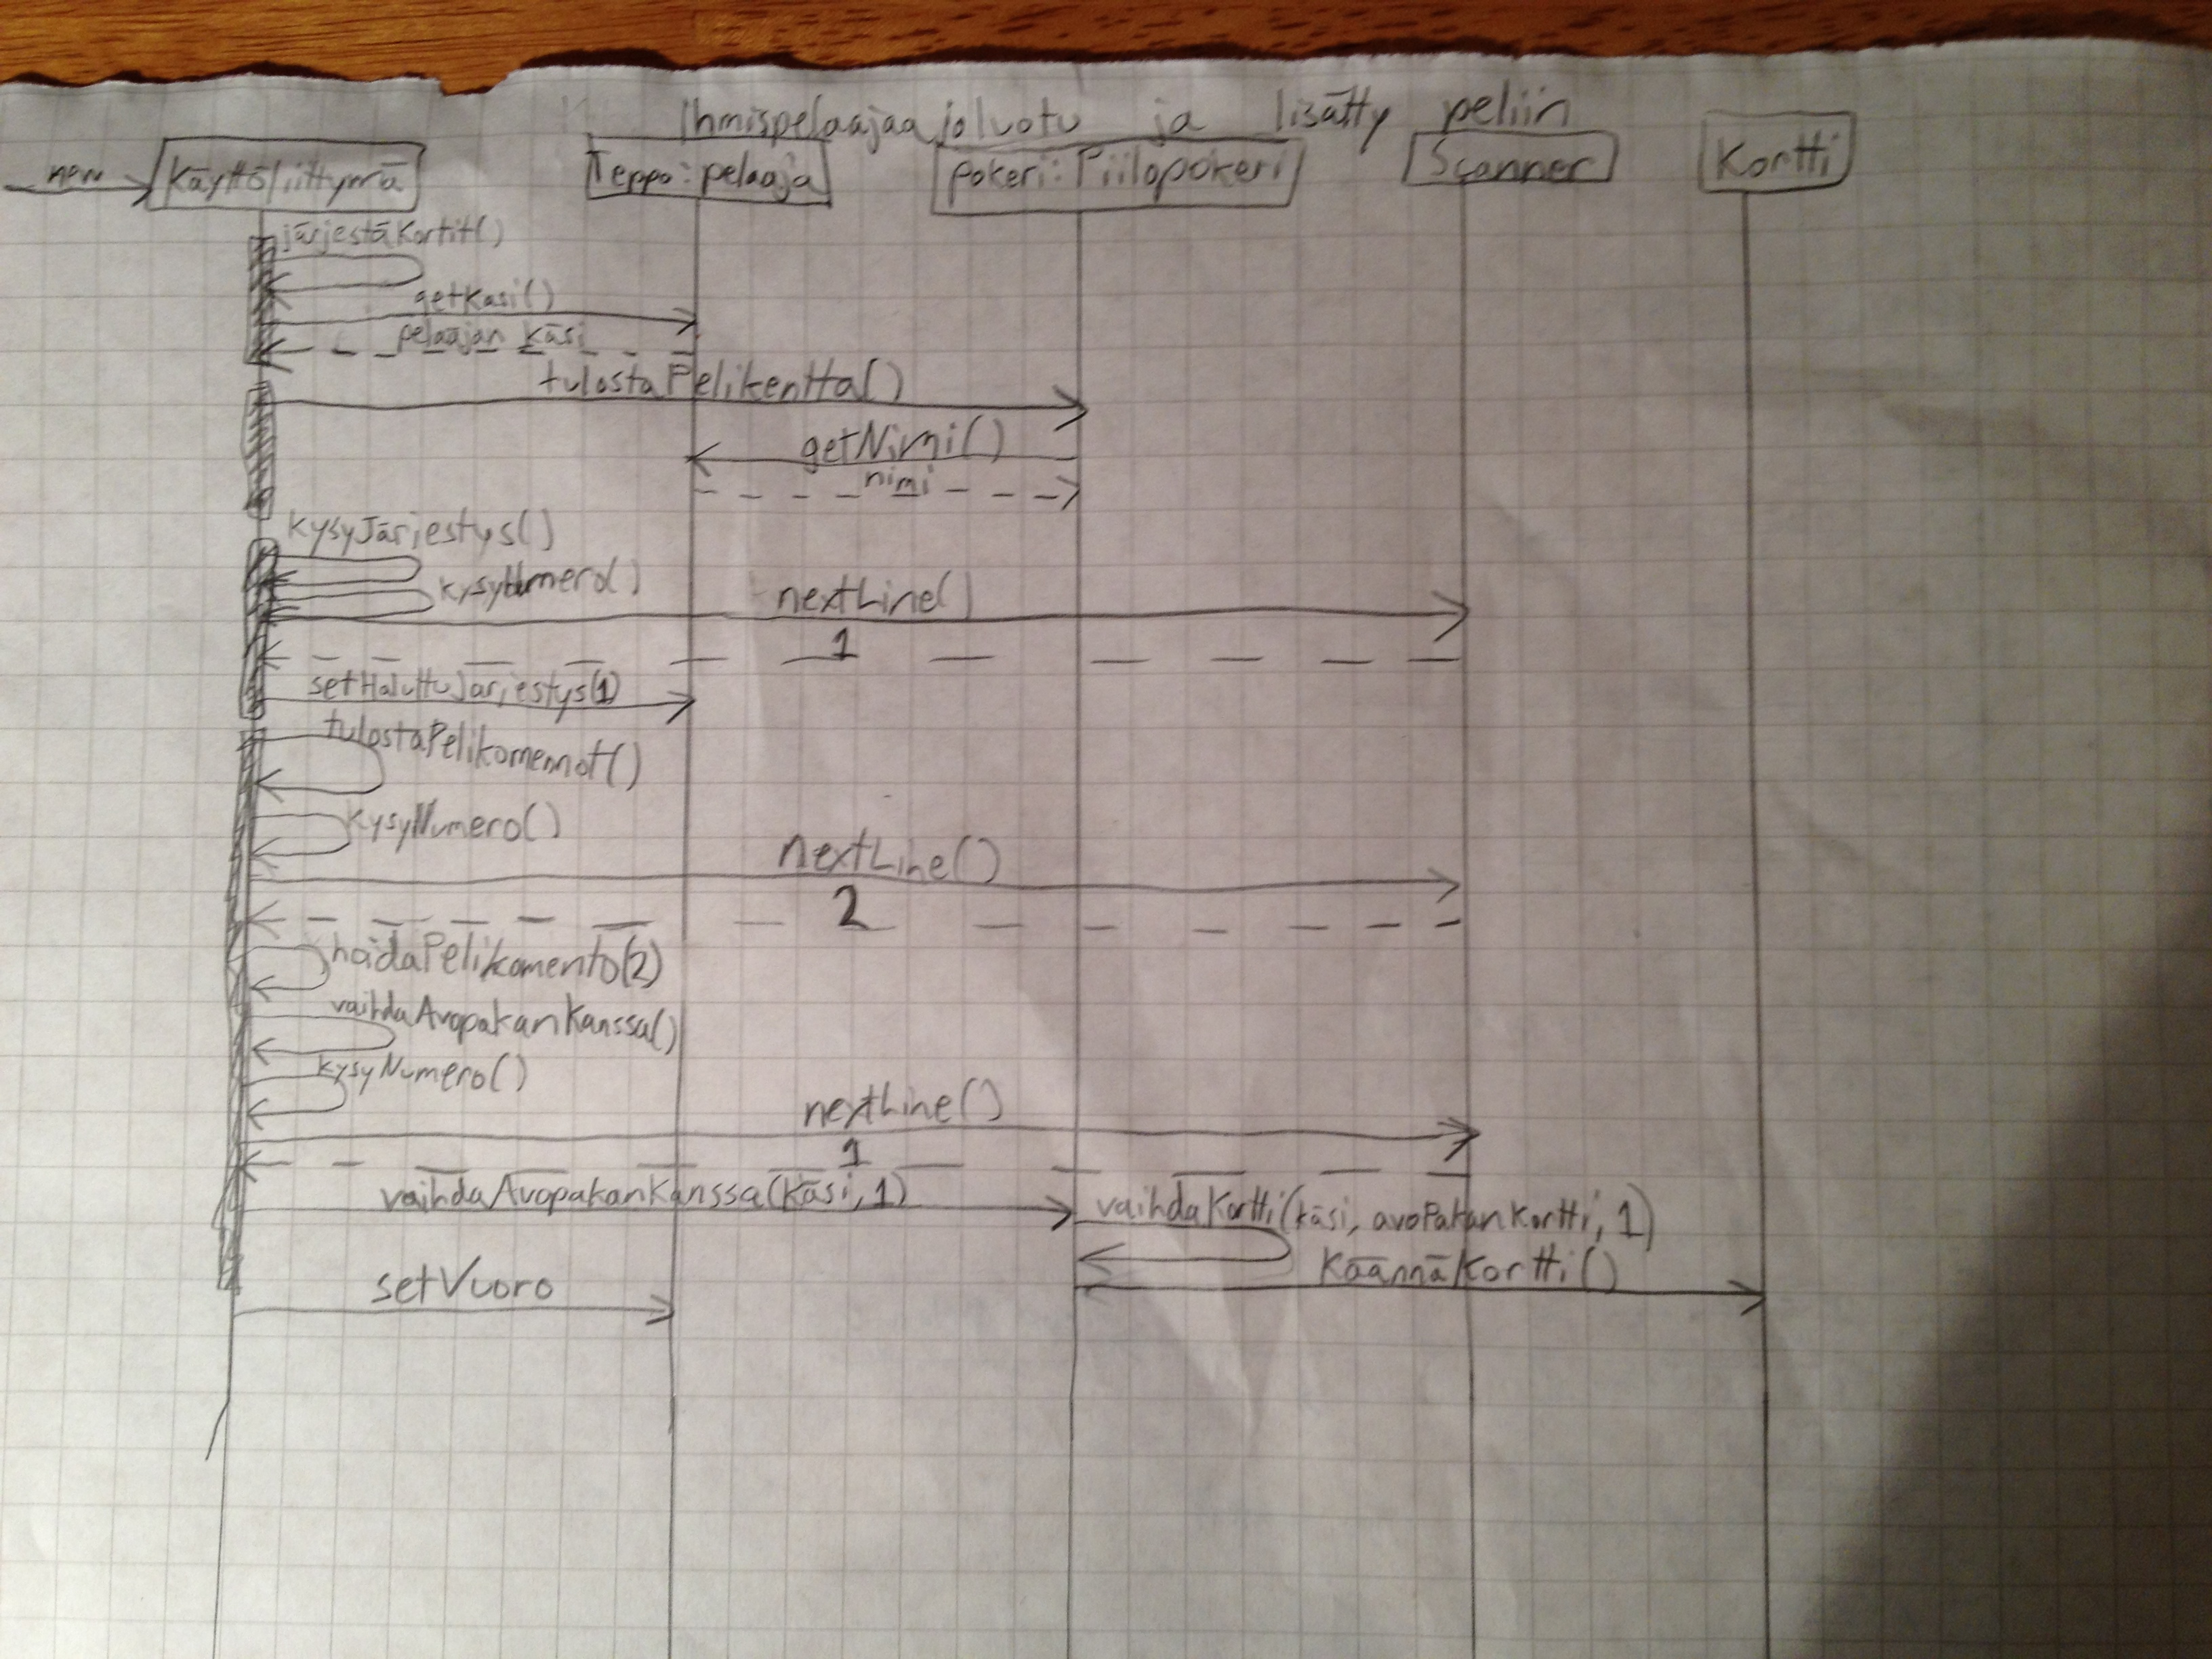 Ihmispelaajaa jo luotu ja lisätty peliin
new
Käyttöliittymä
Teppo:pelaaja
pokeri:Piilopokeri
Scanner
Kortti
järjestäKortit()
getKasi()
pelaajan käsi
tulostaPelikentta()
getNimi()
nimi
kysyJärjestys()
kysyNumero()
nextLine()
1
setHaluttuJärjestys(1)
tulostaPelikomennot()
kysyNumero()
nextLine()
2
hoidaPelikomento(2)
vaihdaAvopakanKanssa()
kysyNumero()
nextLine()
1
vaihdaAvopakanKanssa(käsi, 1)
vaihdaKortti(käsi, avoPakanKortti, 1)
KäännäKortti()
setVuoro